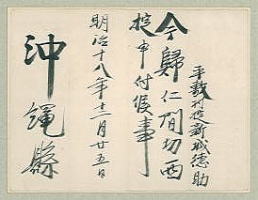 平敷村役新城徳助
今帰仁間切西
掟申付候事
明治十八年十二月廿五日
沖縄縣